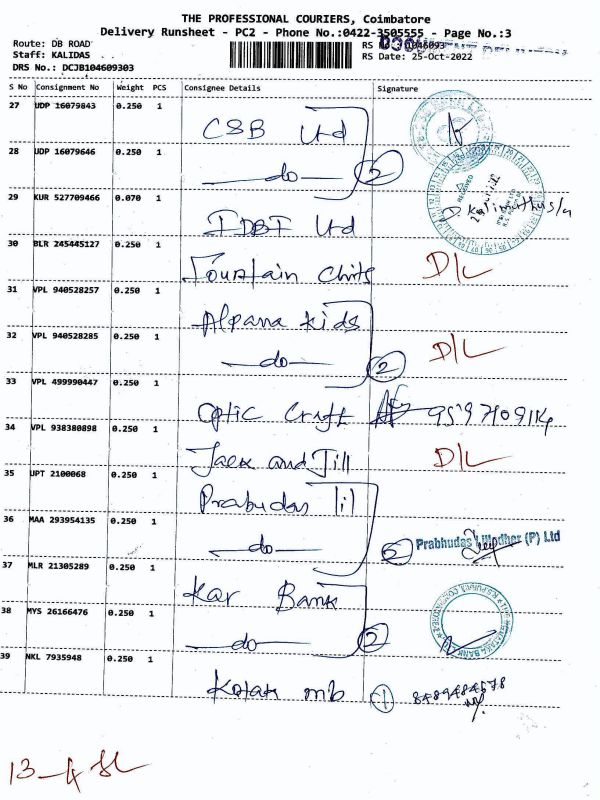 THE PROFESSIONAL COURIERS, Coimbatore
Delivery Runsheet - PC2 - Phone No.:0422-3505555 - Page No.:3
Route: DB ROAD
Staff: KALIDAS
DRS No.: DCJB104609303
RS Date: 25-Oct-2022
S No Consignment No Weight PCS Consignee Details Signature
27 UDP 16079843 0.250 1 CSB Ltd
28 UDP 16079646 0.250 1 do 2
29 KUR 527709466 0.070 1 IDBI Ltd
30 BLR 245445127 0.250 1 Fountain Chits D/L
31 VPL 940528257 0.250 1 Alpana Kids
32 VPL 940528285 0.250 1 do 2 D/L
33 VPL 499990447 0.250 1 Optic Craft
34 VPL 938380898 0.250 1 Jack and Jill D/L
35 UPT 2100068 0.250 1 Prabudas lil
36 MAA 293954135 0.250 1 do Prabhudas Lilladher (P) Ltd
37 MLR 21305289 0.250 1 Kar Bank
38 MYS 26166476 0.250 1 do 2
39 NKL 7935948 0.250 1 Kotak mb 1